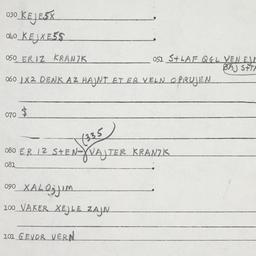 030 KEJESX
040 KEJXESS
050 ER1Z KRANJK 051 S+LAF Q&L VEN EJN
060 IXZ DENK AZ HAJNT ET ER VELN OPRUJEN
070 $
(335
080 ER IZ S+EN-VAJTER KRANJK
081
090 XALOJJIM
100 VAKER XEJLE ZAJN
101 GEVOR VERN